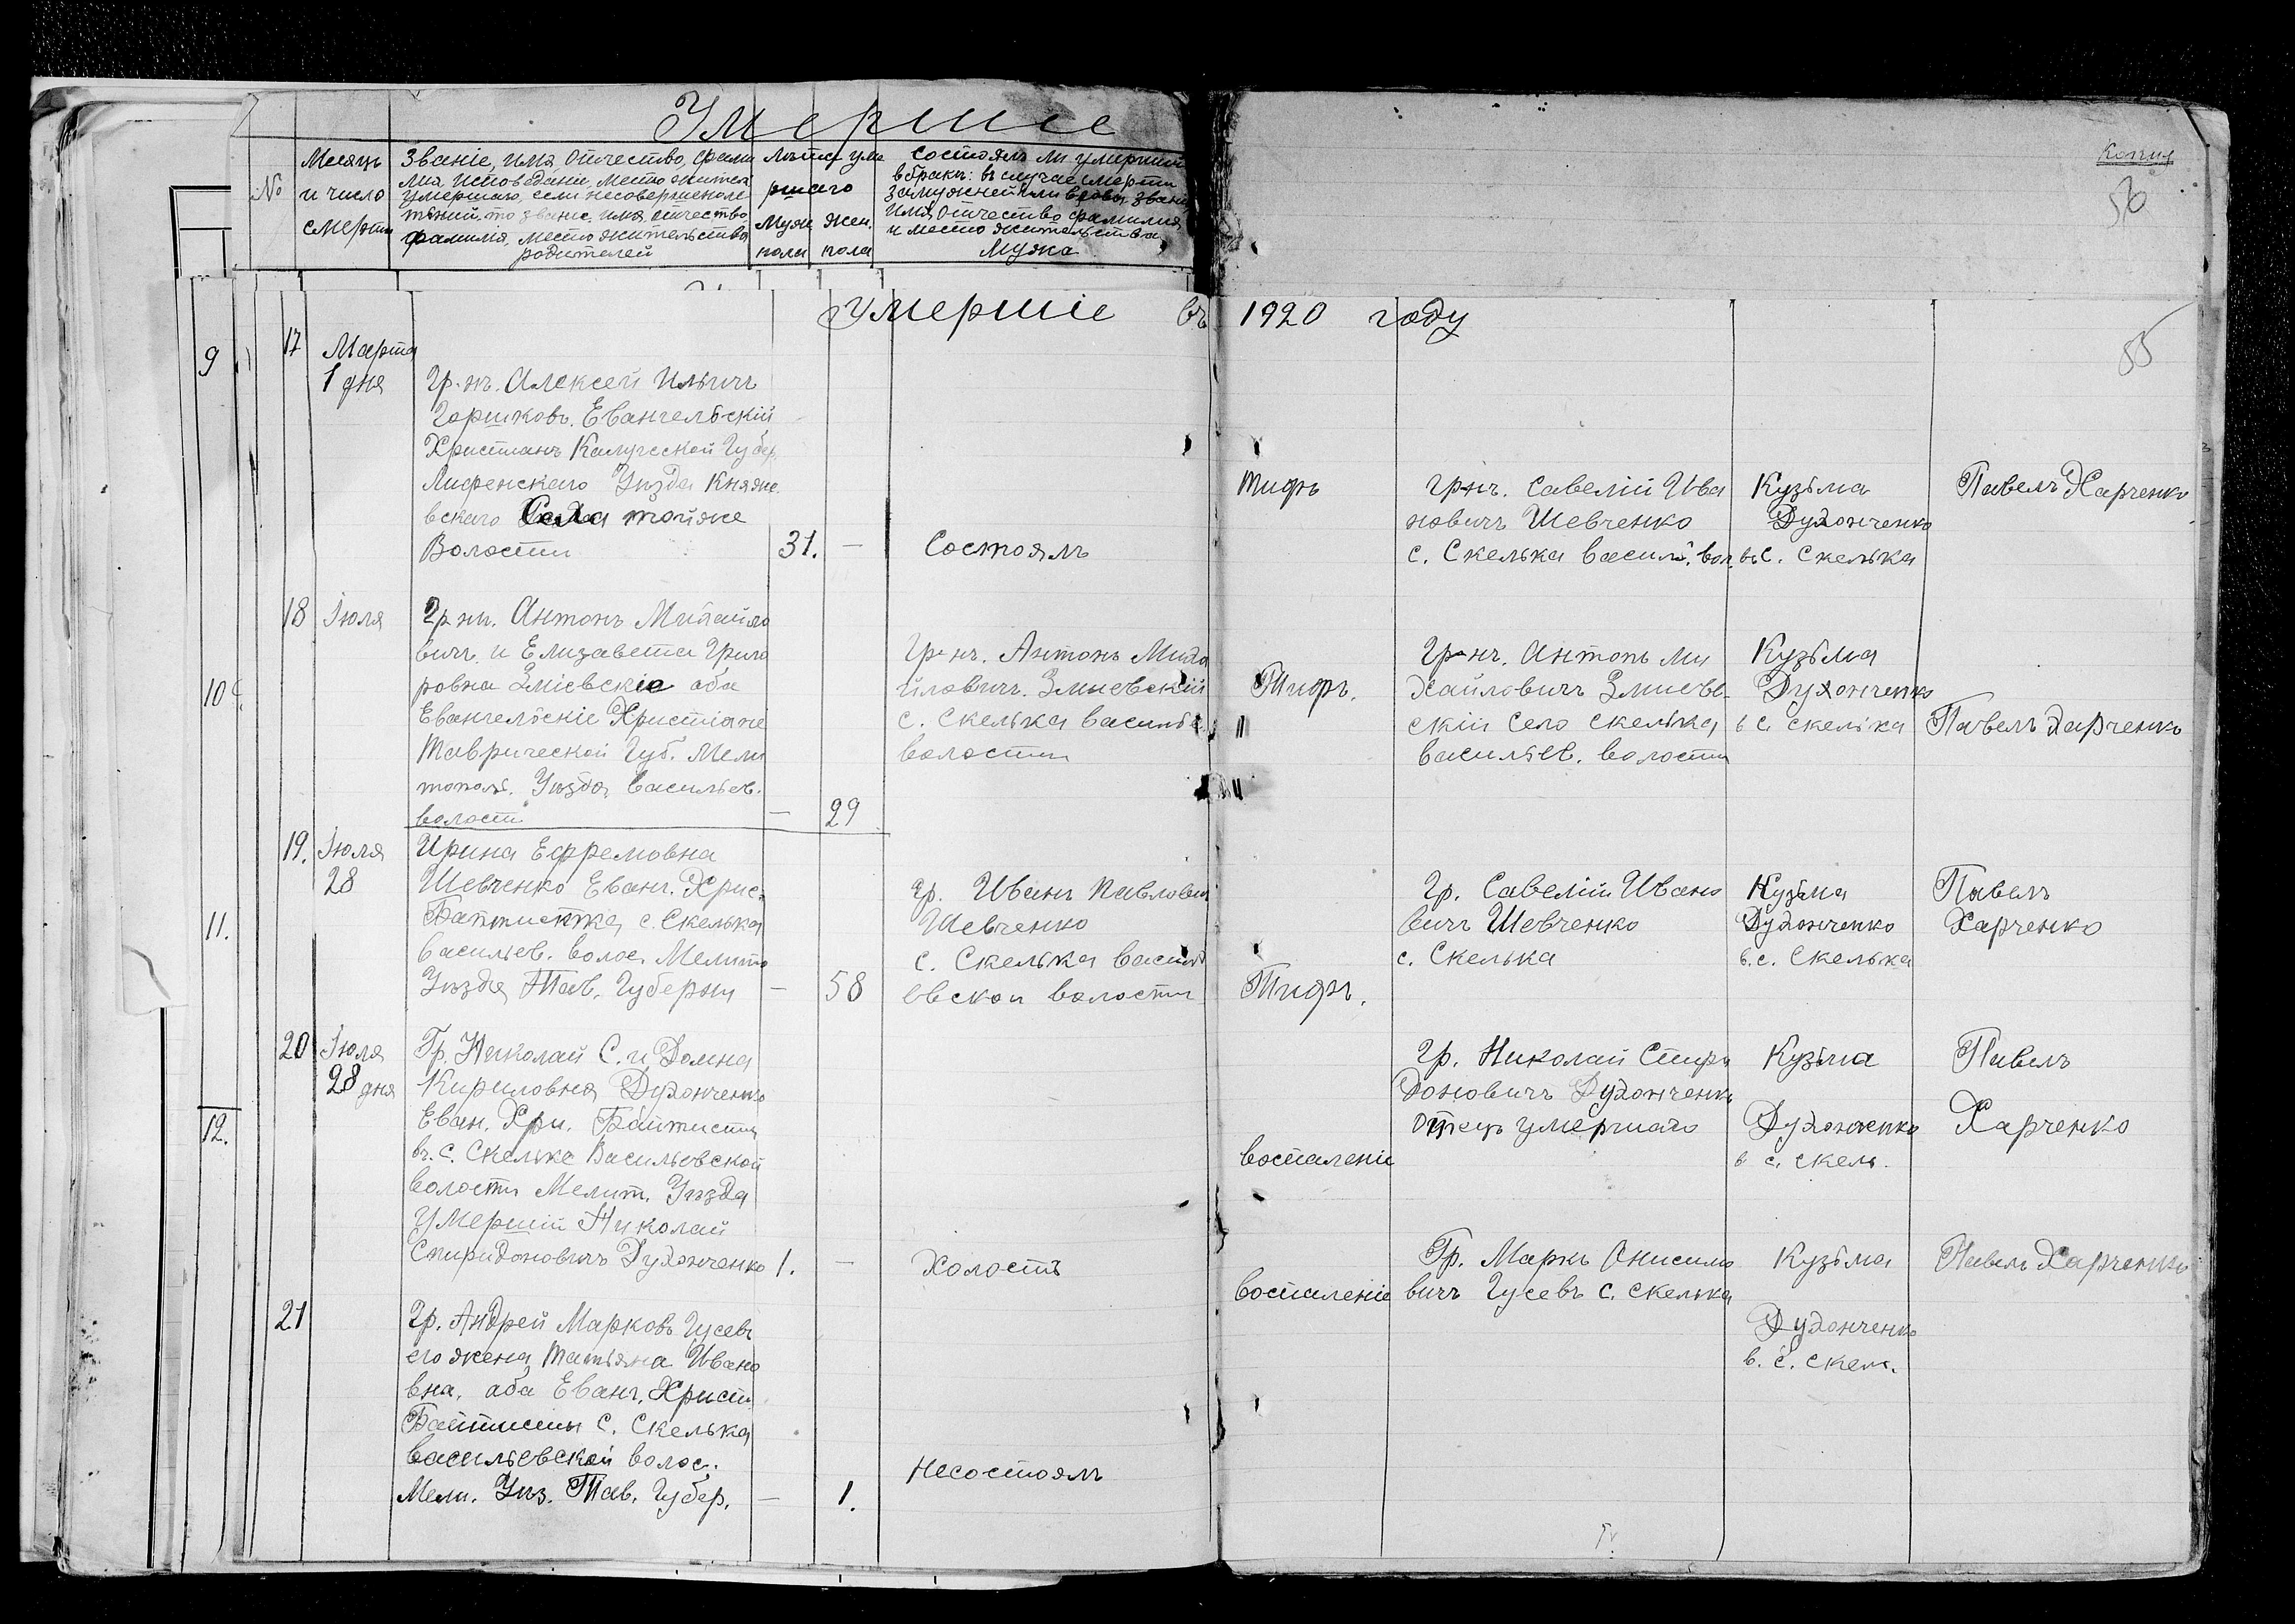 Умершіе
№
Месяцъ и число смерти
Званіе, имя отчество, фами
лия исповедани, место жител
умершаго, если несовершеноле
тній, то звание, имя, отчество,
фамилія, место жительства
родителей
Лъта уме
ршаго
Муж. пола
жен. пола
Состоялъ ли умершій
в бракъ: въ случае смерти
замужней или вдовы званіе
имя отчество фамилия
и место жительства
Мужа
Копия
56
Умершіе въ 1920 году
55
9
17
Марта
1 дня
Гр-нъ. Алексей Ильичъ
Горшковъ. Евангельскій
Христианъ Калужской Губер
Лифенскаго Уъзда Княже
вскаго Села тойже
Волости
31.
—
Состоялъ
тифъ
Гр-нъ. Савелій Ива
новичъ Шевченко
с. Скелька Васил. вол.
Кузьма
Духонченко
въ С. Скелька
Павелъ Харченко
10
18
Іюля
Гр-нъ. Антонъ Михайло
вичъ и Елизавета Григо
ровна Зміевскіе оба
Евангельскіе Христіане
Таврической Губ. Мели
тополь. Уъзда, Васильев.
волости
—
29
Гр-нъ. Антонъ Миха
йловичъ. Змиевскій
с. Скелька Василье
волости
Тифъ.
"
"
Гр-нъ. Антонъ Ми
хайловичъ Змиев
скій Село Скелька
Васильев. волости
Кузьма
Духонченко
в С. Скелька
Павелъ Харченко
11.
19.
Іюля
28
Ирина Ефремовна
Шевченко Еванг. Хрис.
Баптистка с. Скелька
Васильев. волос. Мелито
Уъзда Тав. Губерни
—
58
гр. Иванъ Павлович
Шевченко
с. Скелька Василь
евской волости
Тифъ.
Гр. Савелій Ивано
вичъ Шевченко
с. Скелька
Кузьма
Духонченко
в. с. Скелька
Павелъ
Харченко
12.
20
Іюля
28 дня
Гр. Николай С. и Домна
Кириловна Духонченко
Еван. Хри. Баптисты
въ. С. Скельке Васильевской
Волости Мелит. Уъзда
Умершій Николай
Спиридоновичъ Духонченко
1.
—
Холостъ
воспаленіе
Гр. Николай Спири
доновичъ Духонченко
отецъ умершаго
Кузьма
Духонченко
в с. Скель.
Павелъ
Харченко
21
Гр. Андрей Марковъ Гусевъ
его жена Татьяна Ивано
вна, оба Еванг. Христ
Баптисты С. Скелька
Васильевской волос.
Мели. Уъз. Тав. Губер.
—
1.
Несостоялъ
воспаленіе
Гр. Маркъ Онисимо
вичъ Гусевъ С. Скелька
Кузьма
Духонченко
в. с. Скель.
Павелъ Харченко